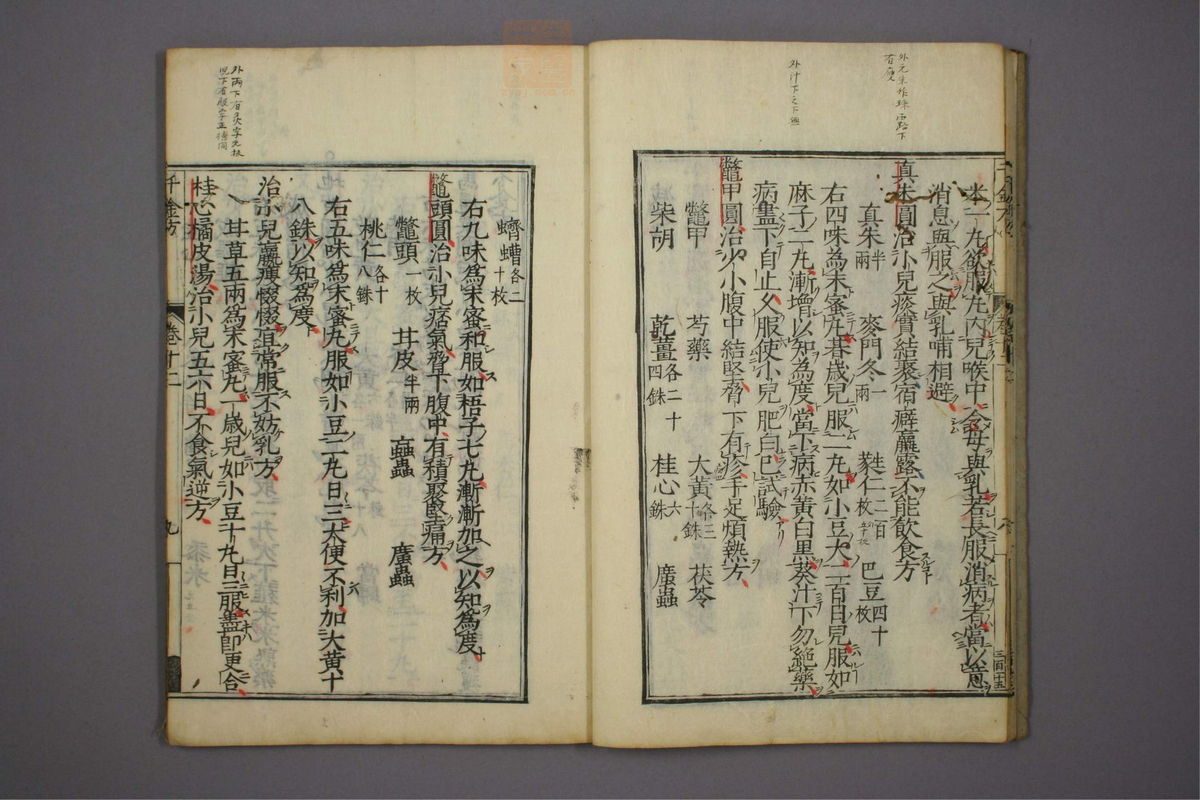 本一丸欲服丸内兒喉中令母與乳若長服消病者當以意
消息與服之與乳哺相避
真朱圓治小兒痰實結聚宿癖羸露不能飲食方
真朱半兩 麥門冬一兩 蕤仁二百枚 巴豆四十枚
右四味為末蜜丸朞歲兒服二丸如小豆大二百日兒服如
麻子二丸漸增以知為度當下病赤黃白黑葵汁下勿絕藥
病盡下自止久服使小兒肥白已試驗
鱉甲圓治少小腹中結堅脅下有疹手足煩熱方
鱉甲 芍藥 大黃各三十銖 茯苓
柴胡 乾薑各二十四銖 桂心六銖 䗪蟲
蠐螬各二十枚
右九味爲末蜜和服如梧子七丸漸漸加之以知爲度
鱉頭圓治小兒痞氣脅下腹中有積聚堅痛方
鱉頭一枚 甘皮半兩 䗪蟲
桃仁各十八銖
右五味爲末蜜丸服如小豆二丸日三大便不利加大黃十
八銖以知爲度
治小兒羸瘦惙惙宜常服不妨乳方
甘草五兩爲末蜜丸一歲兒如小豆十丸日三服盡即更合
桂心橘皮湯治小兒五六日不食氣逆方
千金方
卷十二
九